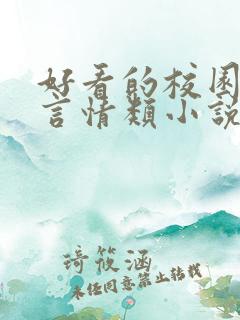 好看的校园
言情类小说
琦筱涵
未经同意禁止转载